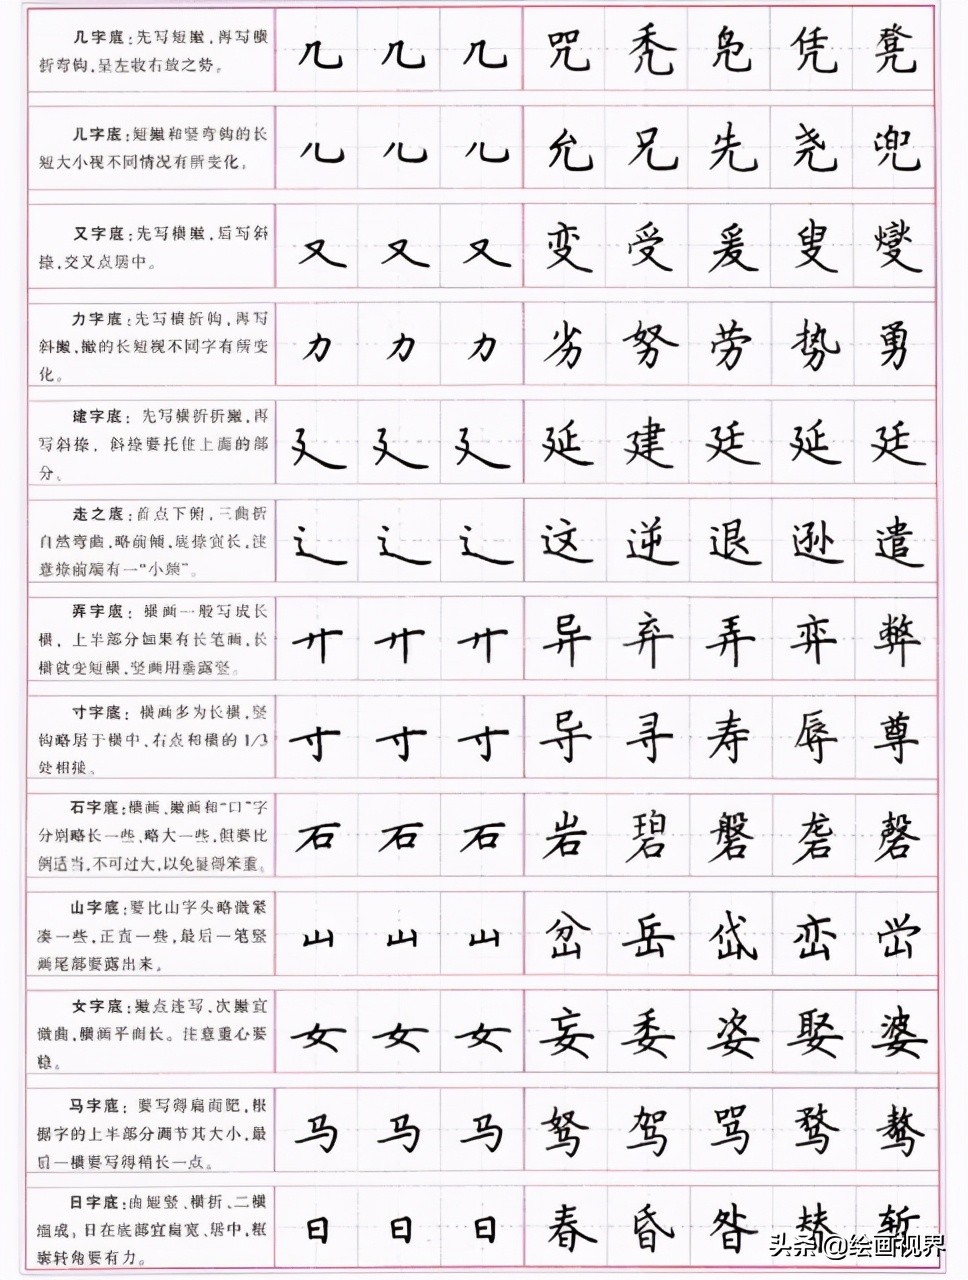 几字底：先写短撇，再写横 几 几 几 咒 秃 凫 凭 凳
折弯钩，呈左收右放之势。
儿字底：短撇和竖弯钩的长 儿 儿 儿 允 兄 先 尧 兜
短大小视不同情况有所变化。
又字底：先写横撇，后写斜 又 又 又 变 受 爰 叟 燮
捺，交叉点居中。
力字底：先写横折钩，再写 力 力 力 劣 努 劳 势 勇
斜撇，撇的长短视不同字有所变
化。
建字底：先写横折折撇，再 廴 廴 廴 延 建 廷 延 廷
写斜捺，斜捺要托住上面的部
分。
走之底：首点下俯，三曲折 辶 辶 辶 这 逆 退 逊 遣
自然弯曲，略前倾，底捺宜长，注
意捺前端有一“小颈”。
弄字底：横画一般写成长 廾 廾 廾 异 弃 弄 弈 弊
横，上半部分如果有长笔画，长
横就变短横，竖画用垂露竖。
寸字底：横画多为长横，竖 寸 寸 寸 导 寻 寿 辱 尊
钩略居于横中、右点和横的1/3
处相接。
石字底：横画、撇画和“口”字 石 石 石 岩 碧 磐 砻 磬
分别略长一些、略大一些，但要比
例适当，不可过大，以免显得笨重。
山字底：要比山字头略微紧 山 山 山 岔 岳 岱 峦 峃
凑一些，正直一些，最后一笔竖
画尾部要露出来。
女字底：撇点连写，次撇宜 女 女 女 妄 委 姿 娶 婆
微曲，横画平而长。注意重心要
稳。
马字底：要写得扁而肥，根 马 马 马 驽 驾 骂 骛 骜
据字的上半部分调节其大小，最
后一横要写得稍长一点。
日字底：由短竖、横折、二横 日 日 日 春 昏 昝 替 暂
组成，日在底部宜扁宽、居中，框
廓转角要有力。
头条 @绘画视界